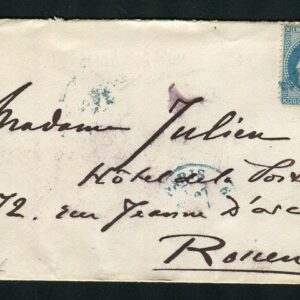 Madame Julien
Hôtel de la Poste
72. rue Jeanne D'arc
Rouen
PARIS